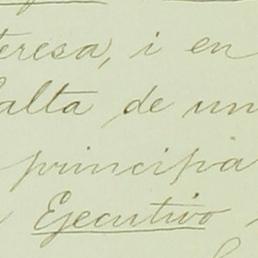 teresa, i en
falta de un
principia
Ejecutivo